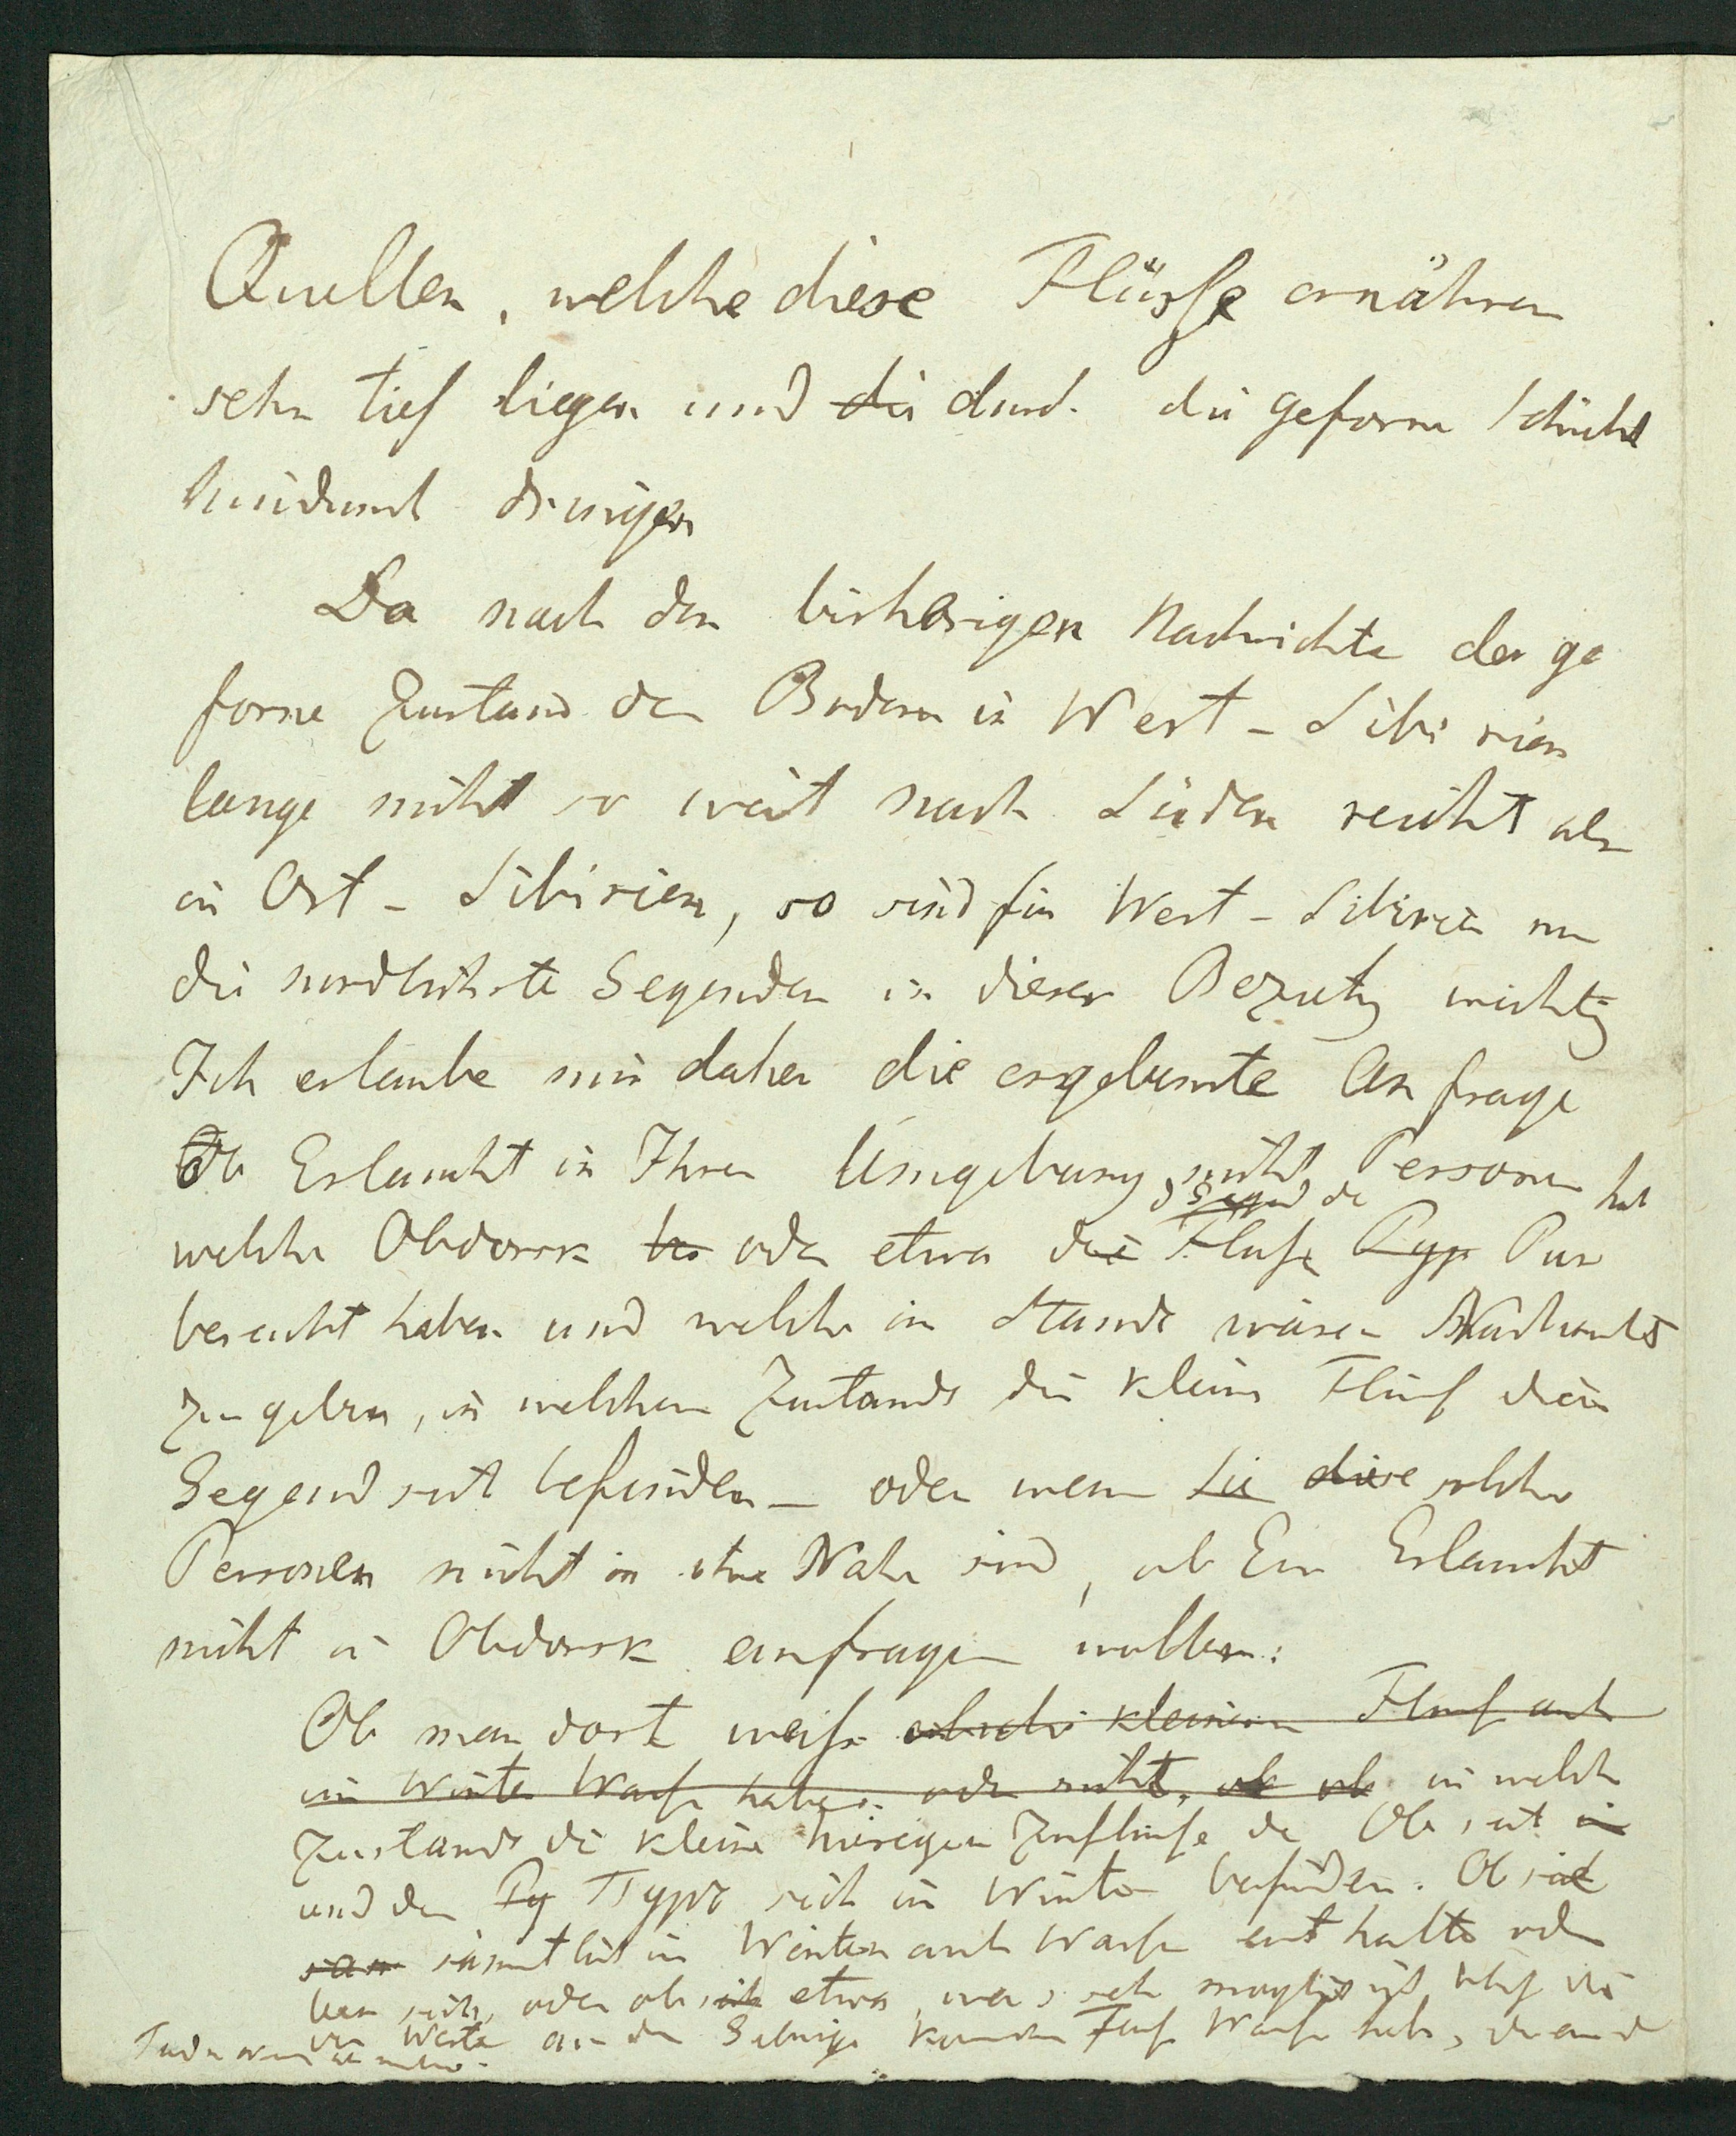 Quellen, welche diese Flüsse ernähren
sehr tief liegen und die durch die gefrorne Schicht
hindurch dringen
Da nach den bisherigen Nachrichten der ge
frorne Zustand des Bodens in West-Sibirien
lange nicht so weit nach Süden reicht als
in Ost-Sibirien, so sind für West-Sibirien nur
die nordlichste Gegenden in dieser Beziehung wichtig
Ich erlaube mir daher die ergebenste Anfrage
Ob Erlaucht in Ihrer Umgebung nicht Personen hat
d Gegend des
welche Obdorsk oder etwa die Fluss Pyr Pur
besucht haben und welche im Stande wären Nachricht
zu geben, in welchem Zustande die kleinen Flüsse dieser
Gegend sich befinden – oder wenn sie diese solche
Personen nicht in Ihrer Nähe sind, ob Eur Erlaucht
nicht in Obdorsk anfragen wollten:
Ob man dort weiss ob die kleinern Flusse auch
im Winter Wasser haben oder nicht, ob ob in welchem
Zustande die kleinen Zuflüsse des Ob seit in
und der Py Пуръ sich im Winter befinden. Ob sie
sam sämmtlich im Winter auch Wasser enthalten oder
oder ob sich etwa, was sehr moglich ist, bloss die
im Westen aus dem Gebirge kommenden Flüsse Wasser haben,